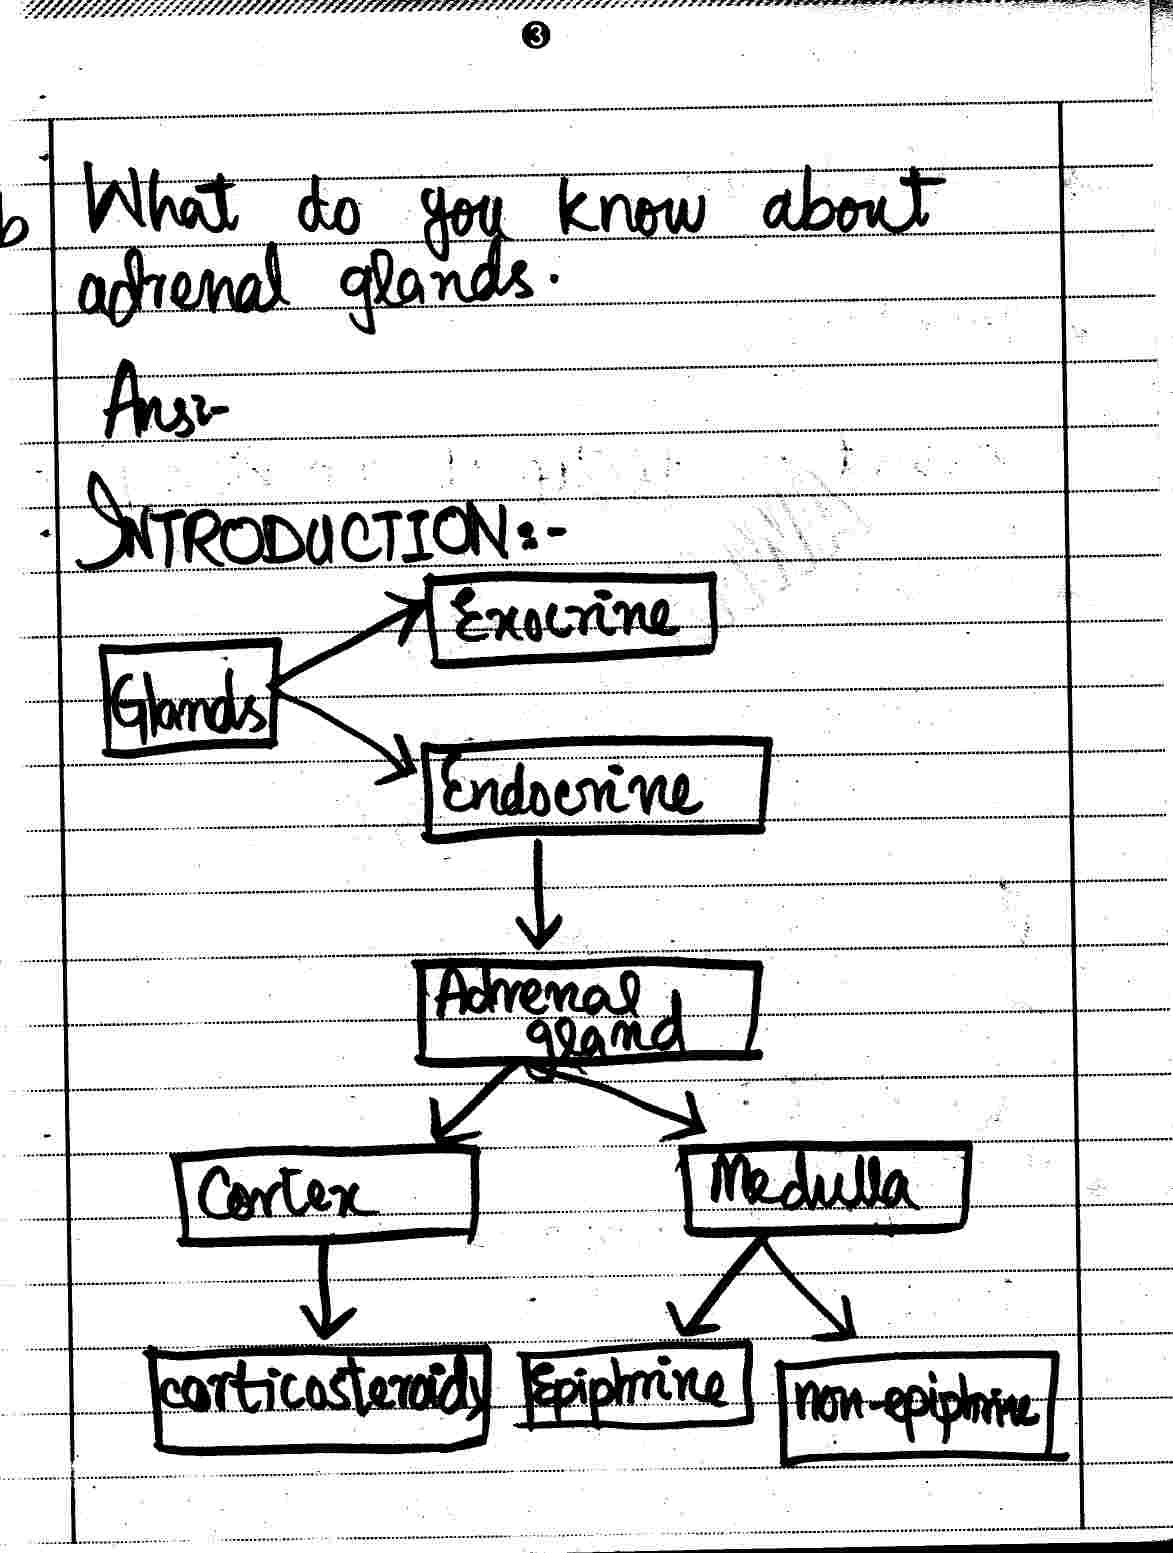 3
b What do you know about
adrenal glands.
Ans:-
INTRODUCTION:-
Exocrine
Glands
Endocrine
Adrenal
gland
Cortex Medulla
corticosteroids Epiphrine non-epiphrine